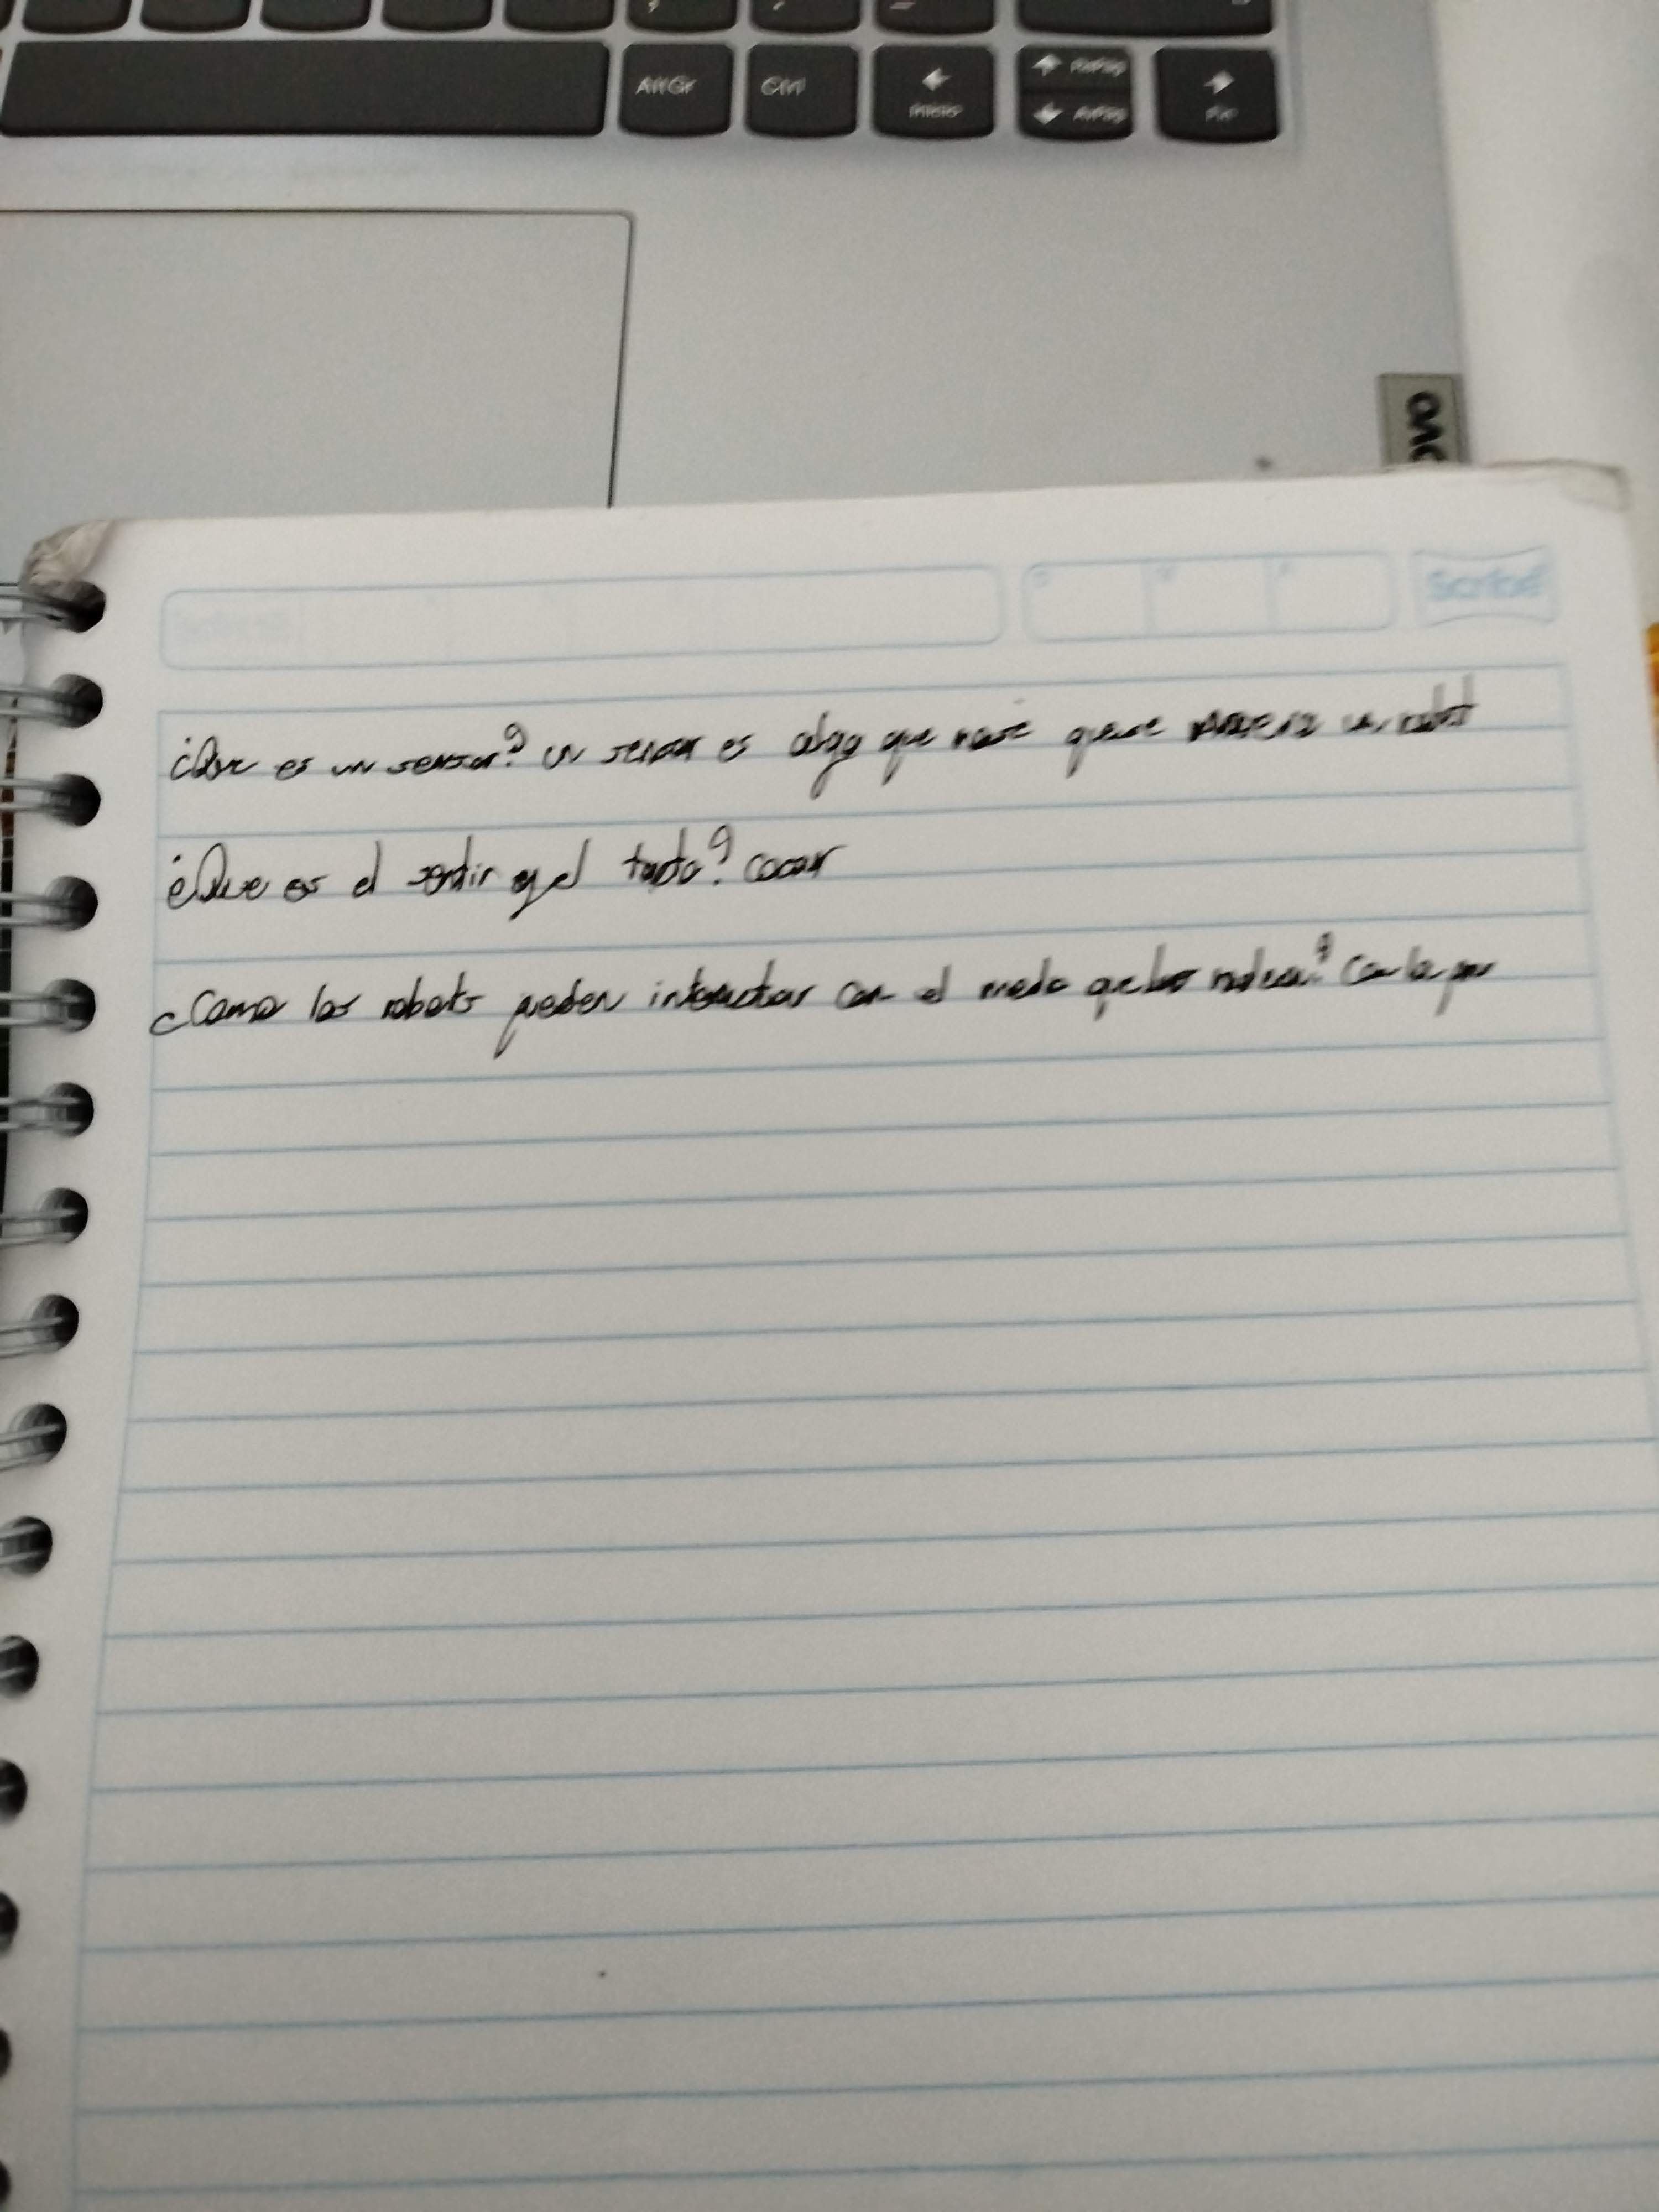 AltGr Ctrl Inicio RePág AvPág Fin
Scribe
¿Que es un sensor? un sensor es algo que un robot
¿Que es el sentir y el tacto?
¿Como los robots pueden interactuar con el medio que los rodean? Con la